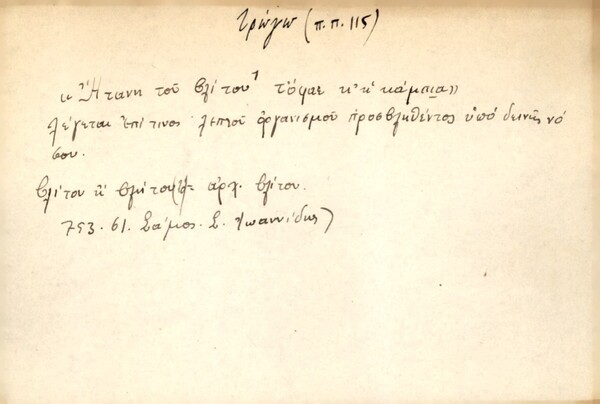 τρώγω (π.π. 115)
«Ἤτανη τοῦ βλίτου¹ τὄφαε κ' ἡ κάμπια»
λέγεται ἐπί τινος λεπτοῦ ὀργανισμοῦ προσβληθέντος ὑπό δεινῆς νό
σου.
βλίτου ἢ βλήτου(¹)= ἀρχ. βλίτον.
753. 61. Σάμος. Σ. Ἰωαννίδης)